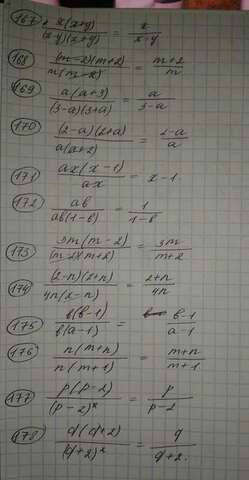 167 x(x+y)/(x-y)(x+y) = x/x-y
168 (m-2)(m+2)/m(m-2) = m+2/m
169 a(a+3)/(3-a)(3+a) = a/3-a
170 (2-a)(2+a)/a(a+2) = 2-a/a
171 ax(x-1)/ax = x-1
172 ab/ab(1-b) = 1/1-b
173 3m(m-2)/(m-2)(m+2) = 3m/m+2
174 (2-n)(2+n)/4n(2-n) = 2+n/4n
175 b(b-1)/b(a-1) = b-1/a-1
176 n(m+n)/n(m+1) = m+n/m+1
177 p(p-2)/(p-2)² = p/p-2
178 q(q+2)/(q+2)² = q/q+2